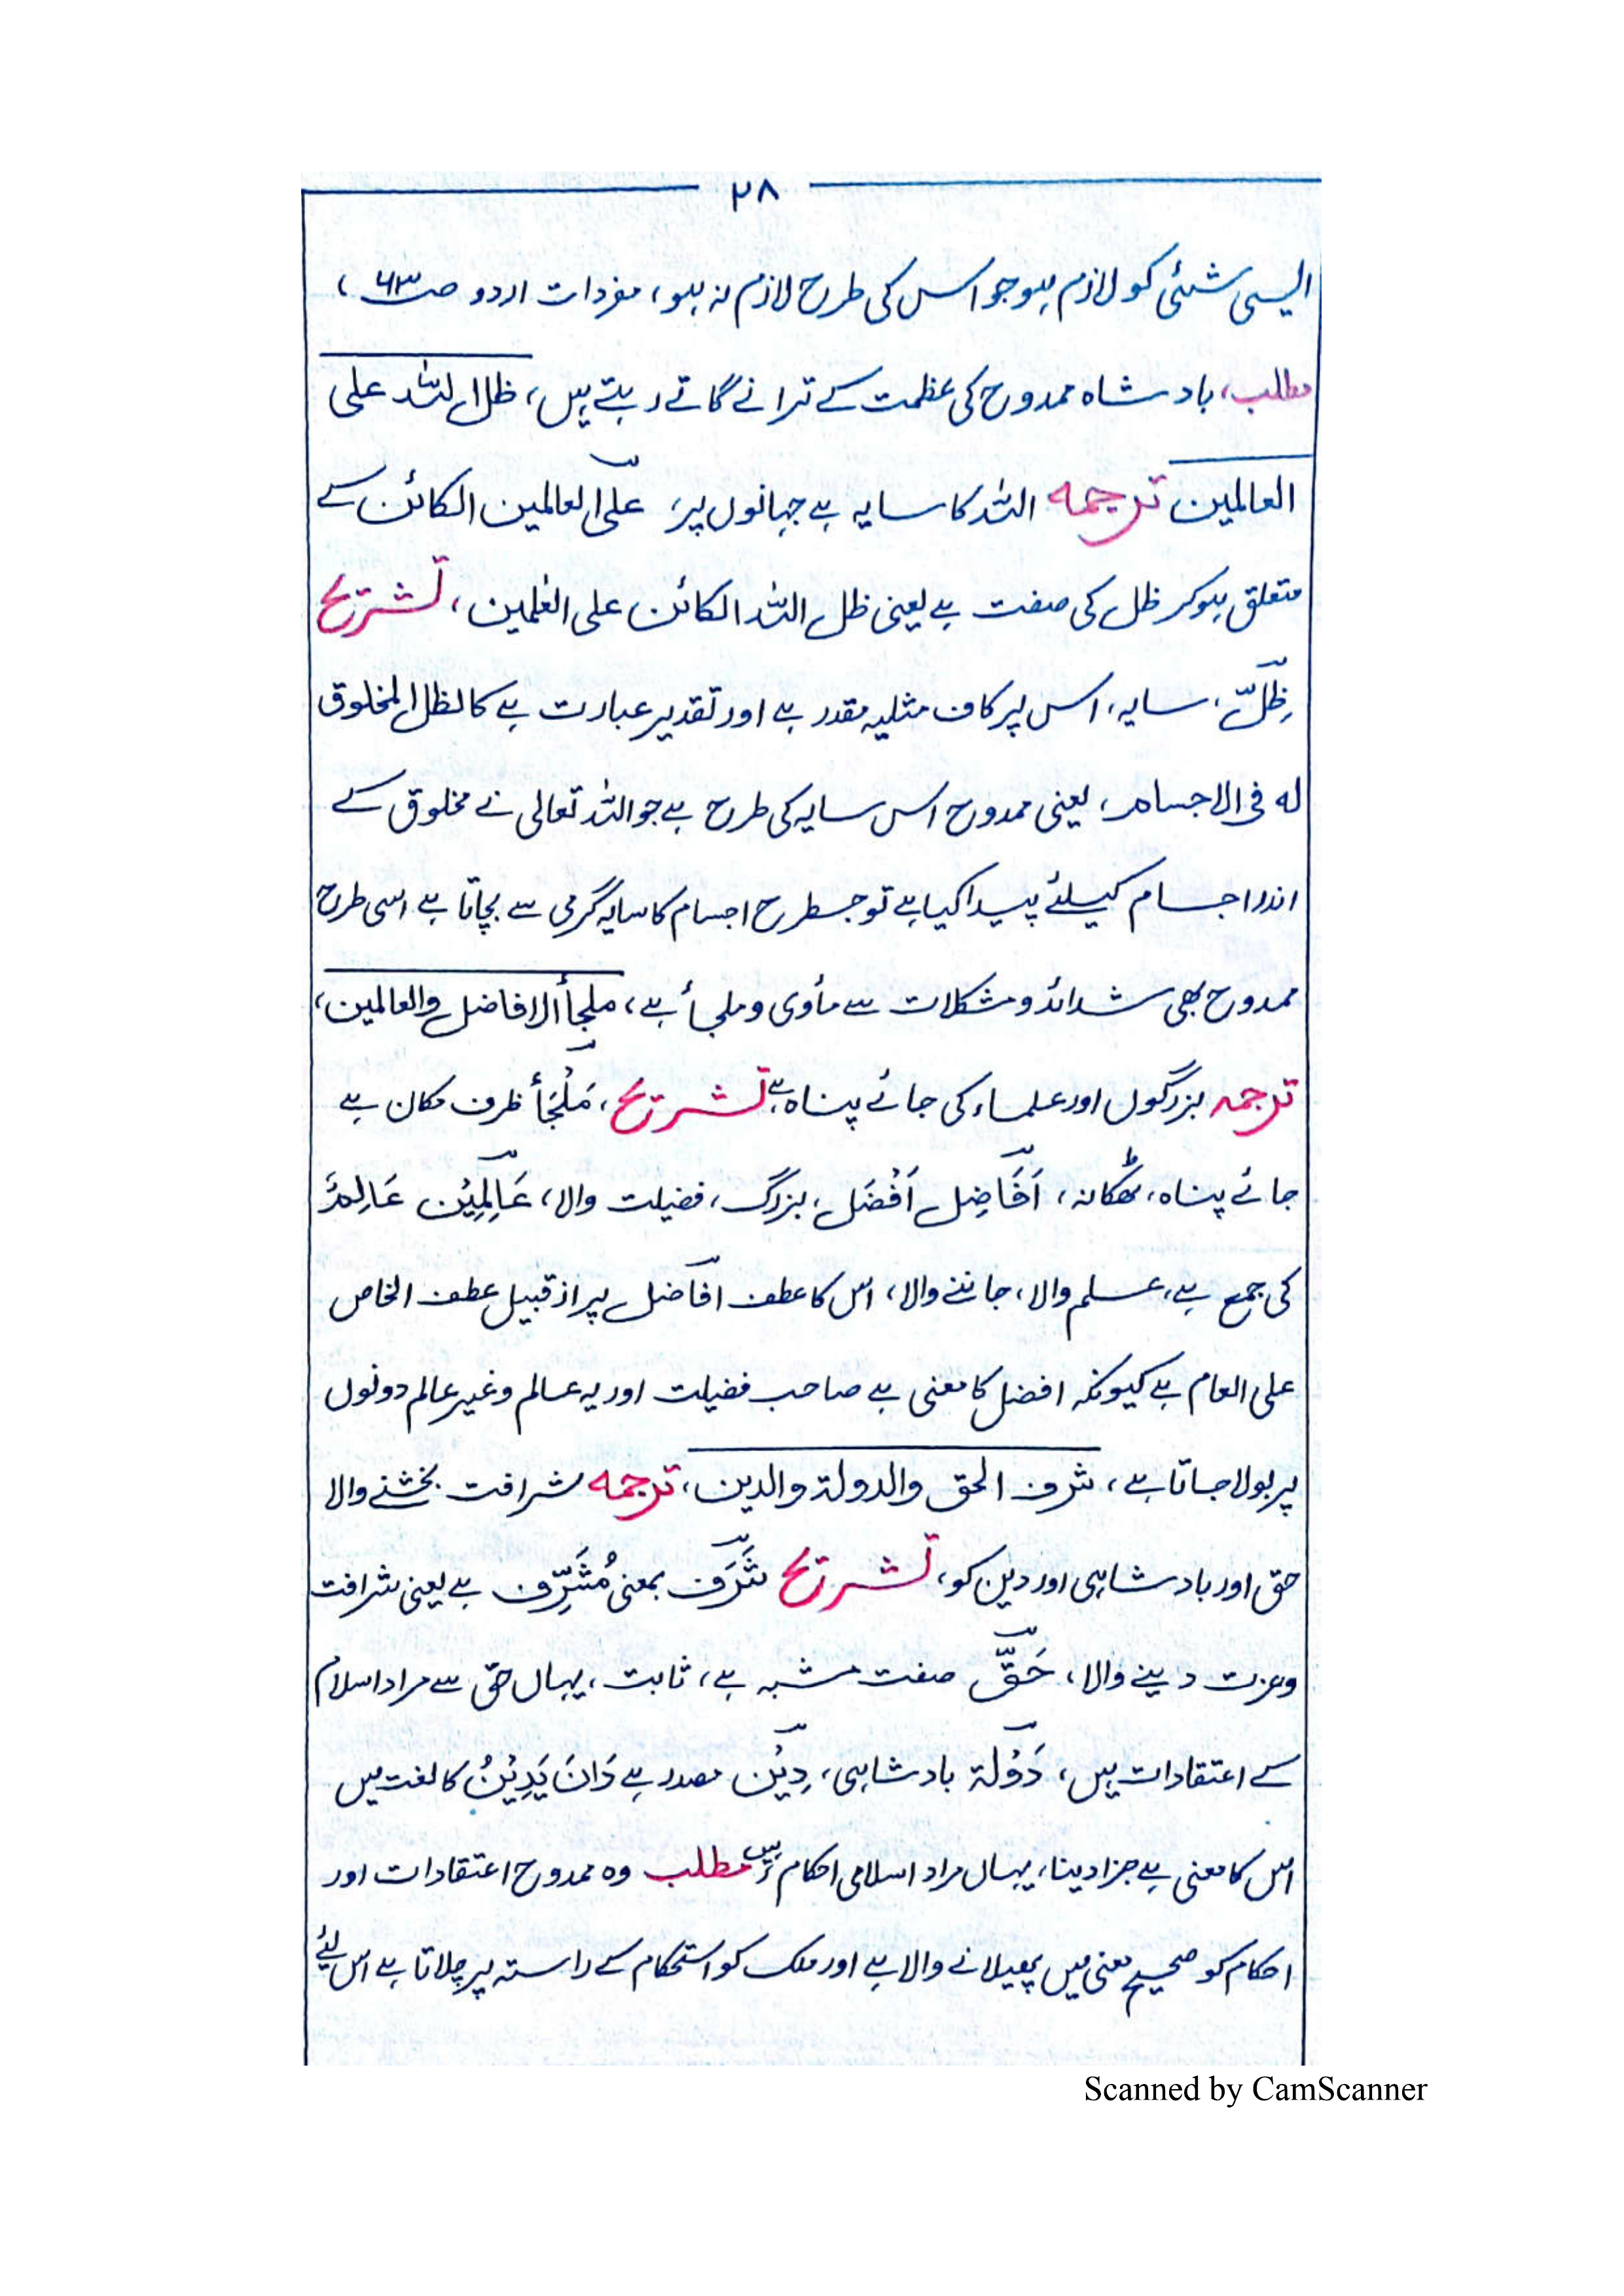 ۲۸
ایسی شئی کو لازم ہو جو اس کی طرح لازم نہ ہو، مفردات اردو صـ۶۳ـ ،
مطلب، بادشاہ ممدوح کی عظمت کے ترانے گاتے رہتے ہیں، ظل اللہ علی
العالمین ترجمہ اللہ کا سایہ ہے جہانوں پر، علی العالمین الکائن کے
متعلق ہوکر ظل کی صفت ہے یعنی ظل اللہ الکائن علی العٰلمین، تشریح
ظِلّ، سایہ، اس پر کاف مثلیہ مقدر ہے اور تقدیر عبارت ہے کالظل المخلوق
لہ فی الاجسام، یعنی ممدوح اس سایہ کی طرح ہے جو اللہ تعالی نے مخلوق کے
اندر اجسام کیلئے پیدا کیا ہے تو جسطرح اجسام کا سایہ گرمی سے بچاتا ہے اسی طرح
ممدوح بھی شدائد و مشکلات سے مأوی و ملجأ ہے، ملجأ الافاضل والعالمین،
ترجمہ بزرگوں اور علماء کی جائے پناہ ہے، تشریح، مَلْجَأ ظرف مکان ہے
جائے پناہ، ٹھکانہ، اَفَاضِل اَفْضَل، بزرگ، فضیلت والا، عَالِمِیْن عَالِمٌ
کی جمع ہے، علم والا، جاننے والا، اس کا عطف افاضل پر از قبیل عطف الخاص
علی العام ہے کیونکہ افضل کا معنی ہے صاحب فضیلت اور یہ عالم و غیر عالم دونوں
پر بولا جاتا ہے، شرف الحق والدولۃ والدین، ترجمہ شرافت بخشنے والا
حق اور بادشاہی اور دین کو، تشریح شَرَف بمعنی مُشَرِّف ہے یعنی شرافت
وعزت دینے والا، حَقّ صفت مشبہ ہے، ثابت، یہاں حق سے مراد اسلام
کے اعتقادات ہیں، دَوْلۃ بادشاہی، دِیْن مصدر ہے دَانَ یَدِیْنُ کا لغت میں
اس کا معنی ہے جزا دینا، یہاں مراد اسلامی احکام ہیں، مطلب وہ ممدوح اعتقادات اور
احکام کو صحیح معنی میں پھیلانے والا ہے اور ملک کو استحکام کے راستہ پر چلاتا ہے اس لیئے
Scanned by CamScanner